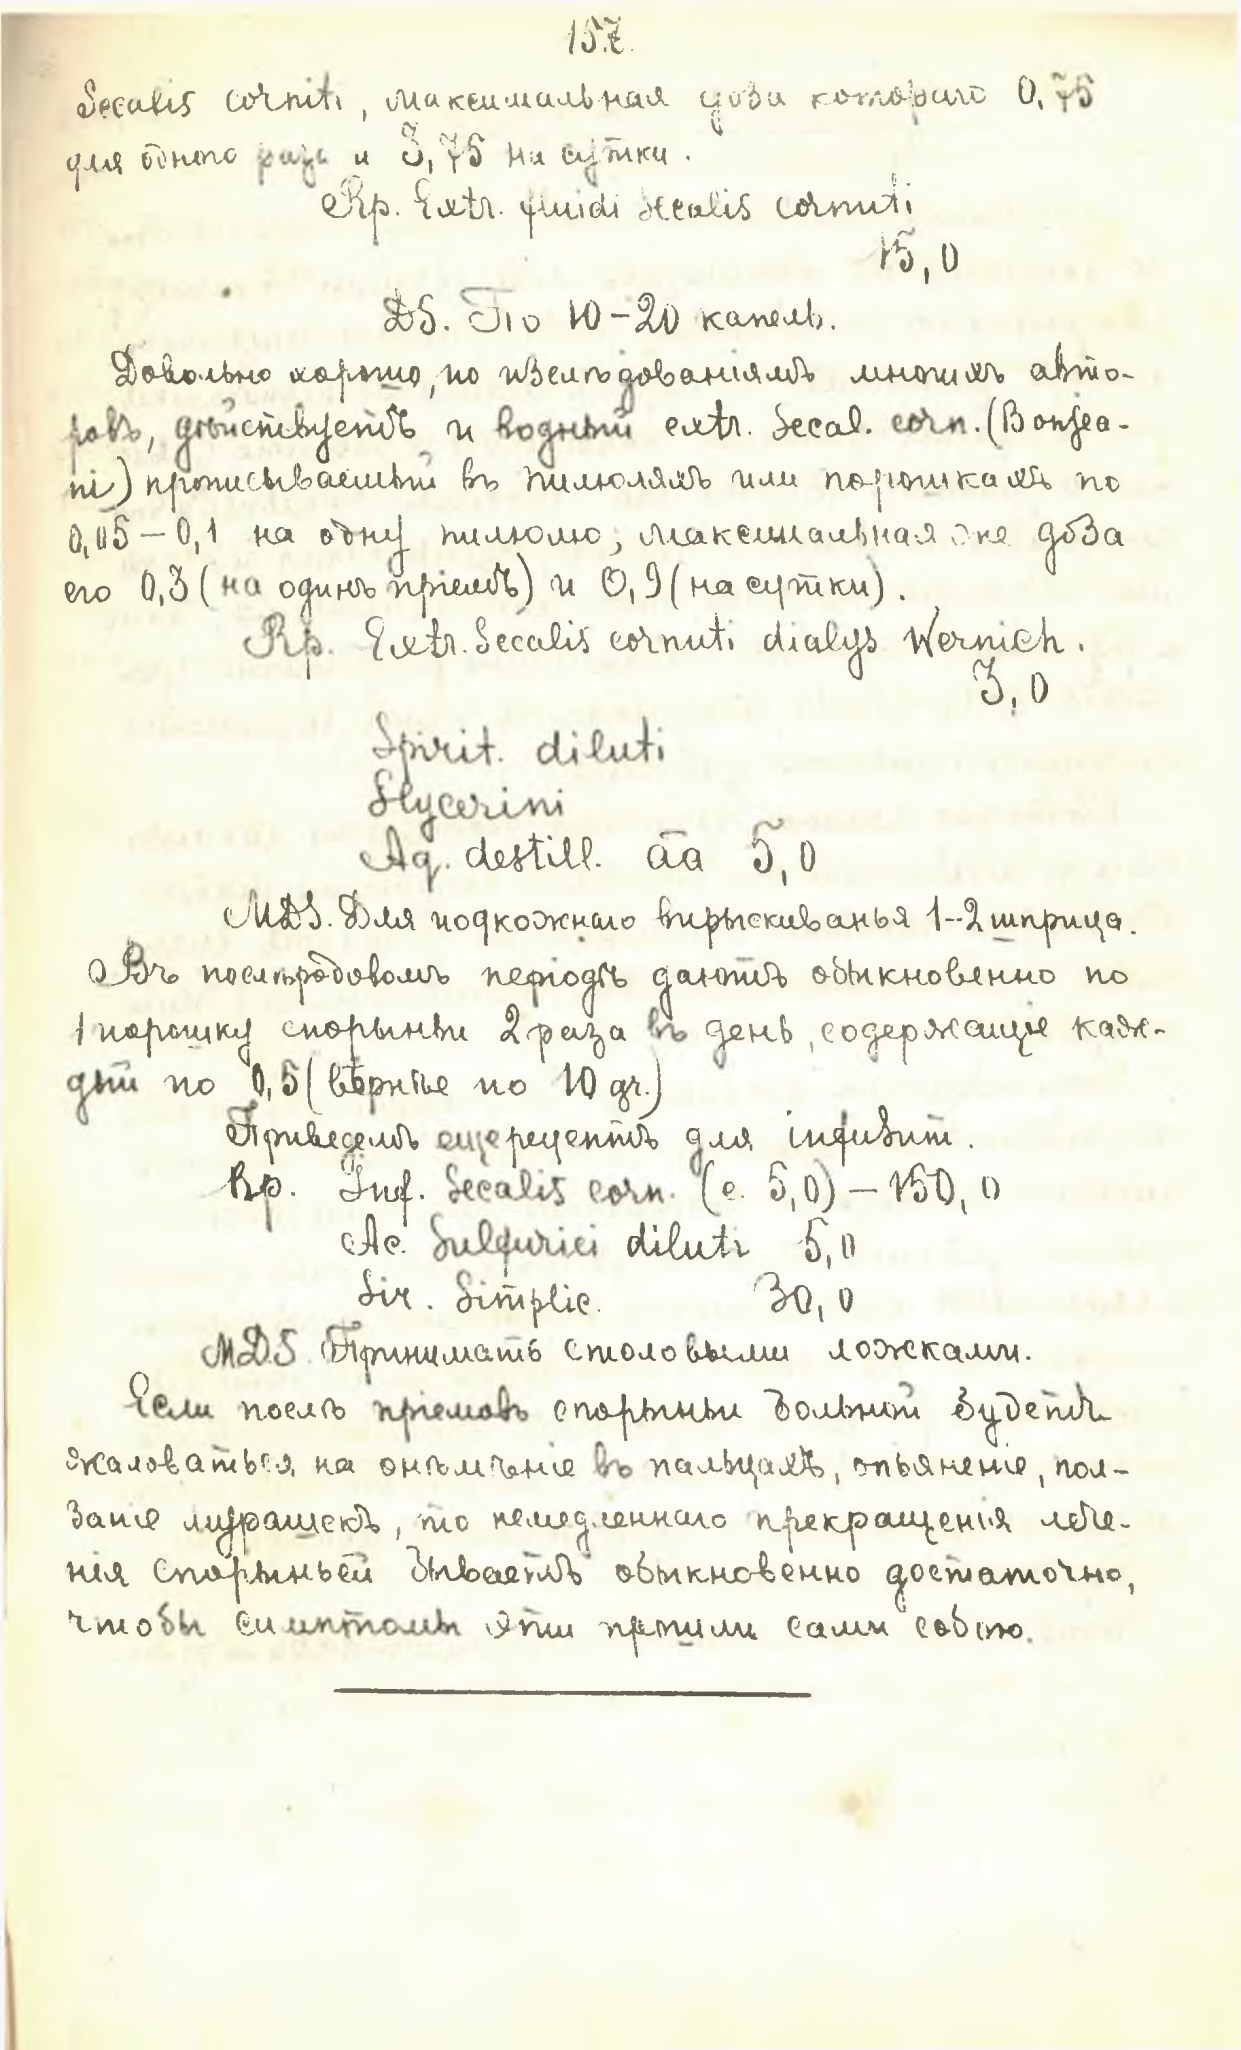 157.
Secalis cornuti, максимальная доза котораго 0,75
для одного раза и 3,75 на сутки.
Rp. Extr. fluidi secalis cornuti
15,0
DS. По 10-20 капель.
Довольно хорошо, по изслѣдованіямъ многихъ авто-
ровъ, дѣйствуетъ и водный extr. Secal. corn. (Bonjea-
ni) прописываемый въ пилюляхъ или порошкахъ по
0,05 – 0,1 на одну пилюлю; максимальная же доза
его 0,3 (на одинъ пріемъ) и 0,9 (на сутки).
Rp. Extr. Secalis cornuti dialys Wernich.
3,0
Spirit. diluti
Glycerini
Aq. destill. āā 5,0
MDS. Для подкожнаго впрыскиванья 1-2 шприца.
Въ послѣродовомъ періодѣ даютъ обыкновенно по
1 порошку спорыньи 2 раза въ день, содержащіе каж-
дый по 0,5 (вѣрнѣе по 10 gr.)
Приведемъ еще рецептъ для infusum.
Rp. Inf. Secalis corn. (e. 5,0) – 150,0
Ac. Sulfurici diluti 5,0
Sir. Simplic. 30,0
MDS Принимать столовыми ложками.
Если послѣ пріемовъ спорыньи больной будетъ
жаловаться на онѣмѣніе въ пальцахъ, опьяненіе, пол-
заніе мурашекъ, то немедленнаго прекращенія лече-
нія спорыньей бываетъ обыкновенно достаточно,
чтобы симптомы эти прошли сами собою.